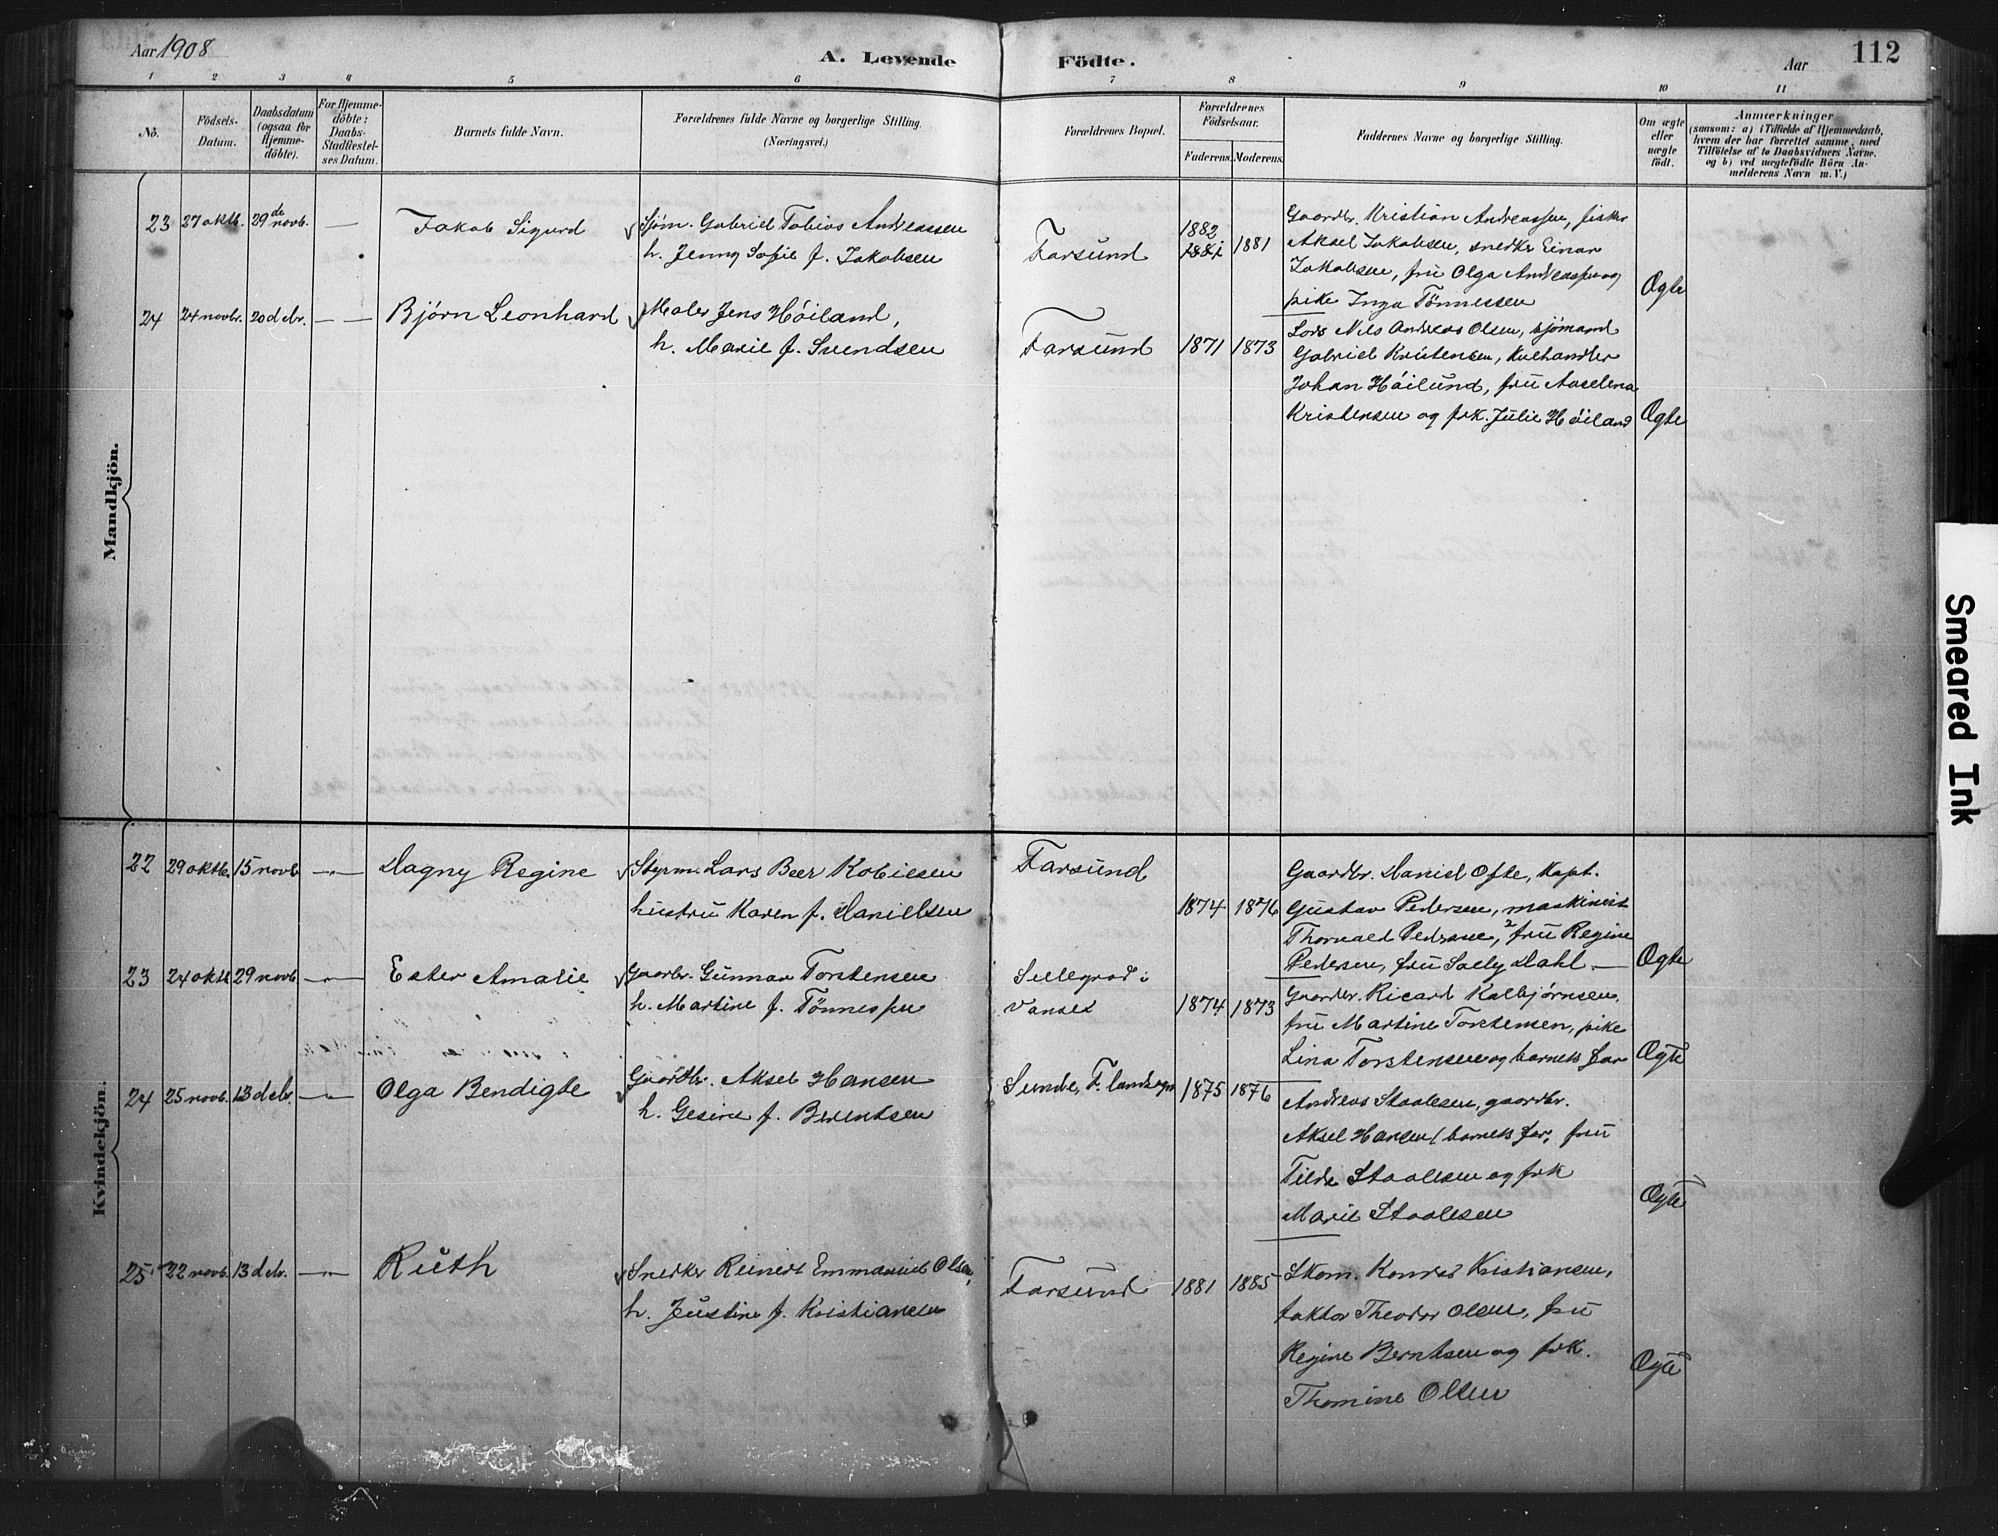 Aar 1908
A. Levende Födte.
Aar
112
1 2 3 4 5 6 7 8 9 10 11
No.
Födsels-
Datum.
Daabsdatum
(ogsaa for
Hjemme-
döbte).
For Hjemme-
döbte:
Daabs-
Stadfæstel-
ses Datum.
Barnets fulde Navn.
Forældrenes fulde Navne og borgerlige Stilling.
(Næringsvei.)
Forældrenes Bopæl.
Forældrenes
Födselsaar.
Faderens. Moderens.
Faddernes Navne og borgerlige Stilling.
Om ægte
eller
uægte
födt.
Anmærkninger
(saasom: a) i Tilfælde af Hjemmedaab,
hvem der har forrettet samme, med
Tilföielse af to Daabsvidners Navne,
og b) ved uægtefödte Börn An-
melderens Navn m. V.)
Mandkjön.
23 27 oktb. 29de novb. — Jakob Sigurd
Sjøm. Gabriel Tobias Andreassen
h. Jenny Sofie f. Jakobsen
Farsund
1882
1881 1881
Gaardbr. Kristian Andreassen, fisker
Aksel Jakobsen, snedker Einar
Jakobsen, fru Olga Andreassen og
pike Inga Tönnessen
Ægte
24 24 novbr. 20 debr. — — Bjørn Leonhard
Maler Jens Høiland,
h. Marie f. Svendsen
Farsund 1871 1873
Lods Nils Andreas Olsen, sjömand
Gabriel Kristensen, kulhandler
Johan Höilund, fru Aaselena
Kristensen og frk. Julie Høiland
Ægte
Kvindekjön.
22 29 oktb. 15 novb. — Dagny Regine
Styrm. Lars Beer Kobiesen
hustru Karen f. Danielsen
Farsund
1874 1876
Gaardbr. Daniel Ofte, kapt.
Gustav Pedersen, maskinist
Thorvald Pedersen, fru Regine
Pedersen, fru Saely Dahl —
Ægte
23 24 oktb 29 novb — Ester Amalie
Gaardbr. Gunnar Torstensen
h. Martine f. Tönnessen
Sellegrod i
Vanse
1874 1873
Gaardbr. Ricard Kolbjørnsen,
fru Martine Torstensen, pike
Lina Torstensen og barnets far
Ægte
24 25 novb. 13 debr. — Olga Bendigte
Gaardbr. Aksel Hansen
h. Gesine f. Berentsen
Sunde, F. landsogn 1875 1876
Andreas Staalesen, gaardbr.
Aksel Hansen, barnets far, fru
Tilda Staalesen og frk
Marie Staalesen
Ægte
25 22 novb. 13 debr. — Ruth
Snedker Reinert Emmanuel Olsen,
h. Justine f. Kristiansen
Farsund 1881 1885
Skom. Konrad Kristiansen,
faktor Theodor Olsen, fru
Regine Berntsen og frk.
Thomine Olsen
Ægte
Smeared Ink